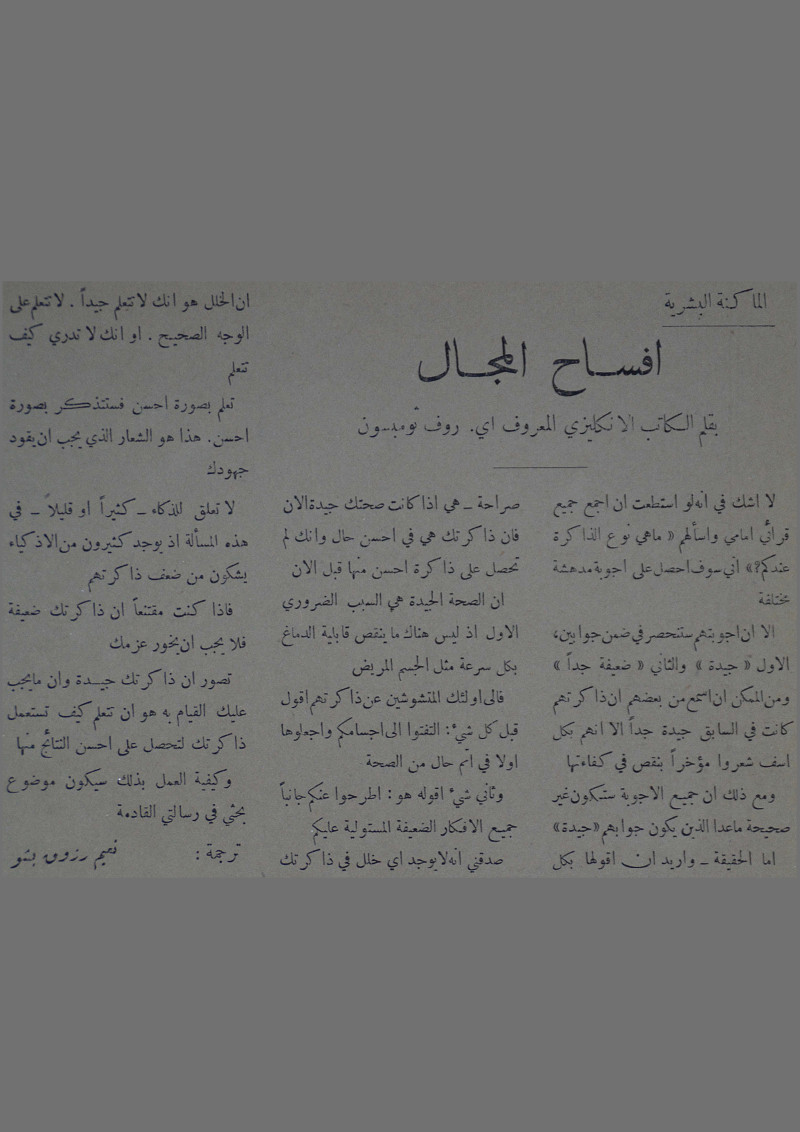 الماكنة البشرية
افساح المجال
بقلم الكاتب الانكليزي المعروف اي. روف تومبسون
لا اشك في انه لو استطعت ان اجمع جميع
قرائي امامي واسألهم « ماهي نوع الذاكرة
عندكم؟» اني سوف احصل على اجوبة مدهشة
مختلفة
الا ان اجوبتهم ستنحصر في ضمن جوابين،
الاول « جيدة » والثاني « ضعيفة جداً »
ومن الممكن ان اسمع من بعضهم ان ذاكرتهم
كانت في السابق جيدة جداً الا انهم بكل
اسف شعروا مؤخراً بنقص في كفاءتها
ومع ذلك ان جميع الاجوبة ستكون غير
صحيحة ماعدا الذين يكون جوابهم «جيدة»
اما الحقيقة ـ واريد ان اقولها بكل
صراحة ـ هي اذا كانت صحتك جيدة الان
فان ذاكرتك هي في احسن حال وانك لم
تحصل على ذاكرة احسن منها قبل الان
ان الصحة الجيدة هي السبب الضروري
الاول اذ ليس هناك ما ينقص قابلية الدماغ
بكل سرعة مثل الجسم المريض
فالى اولئك المتشوشين عن ذاكرتهم اقول
قبل كل شيء: التفتوا الى اجسامكم واجعلوها
اولا في اتم حال من الصحة
وثاني شيء اقوله هو : اطرحوا عنكم جانباً
جميع الافكار الضعيفة المستولية عليكم
صدقني انه لايوجد اي خلل في ذاكرتك
ان الخلل هو انك لا تتعلم جيداً . لا تتعلم على
الوجه الصحيح . او انك لا تدري كيف
تتعلم
تعلم بصورة احسن فستتذكر بصورة
احسن. هذا هو الشعار الذي يجب ان يقود
جهودك
لا تعلق للذكاء ـ كثيراً او قليلاً ـ في
هذه المسألة اذ يوجد كثيرون من الاذكياء
يشكون من ضعف ذاكرتهم
فاذا كنت مقتنعاً ان ذاكرتك ضعيفة
فلا يجب ان يخور عزمك
تصور ان ذاكرتك جيدة وان مايجب
عليك القيام به هو ان تتعلم كيف تستعمل
ذاكرتك لتحصل على احسن النتائج منها
وكيفية العمل بذلك سيكون موضوع
بحثي في رسالتي القادمة
ترجمة : نعيم رزوق بتو